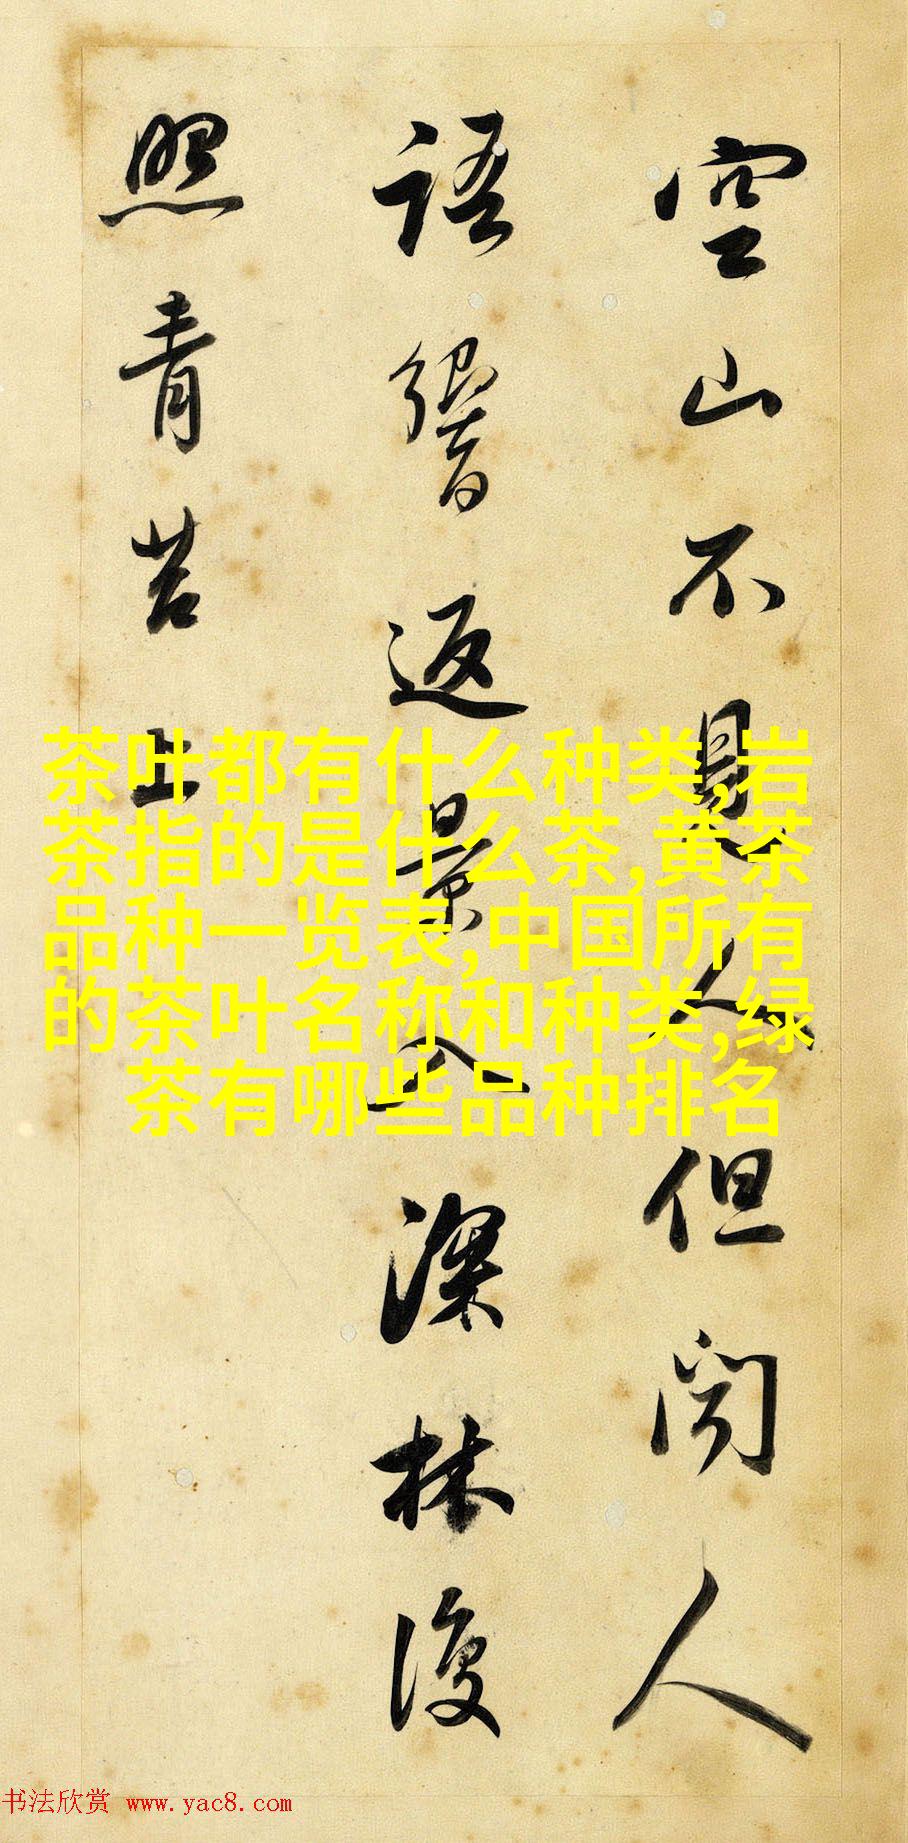 空山不見人但聞人
語響返景入深林復
照青苔上
茶叶都有什么种类,岩
茶指的是什么茶,黄茶
品种一览表,中国所有
的茶叶名称和种类,绿
茶有哪些品种排名
书法欣赏 www.yac8.com